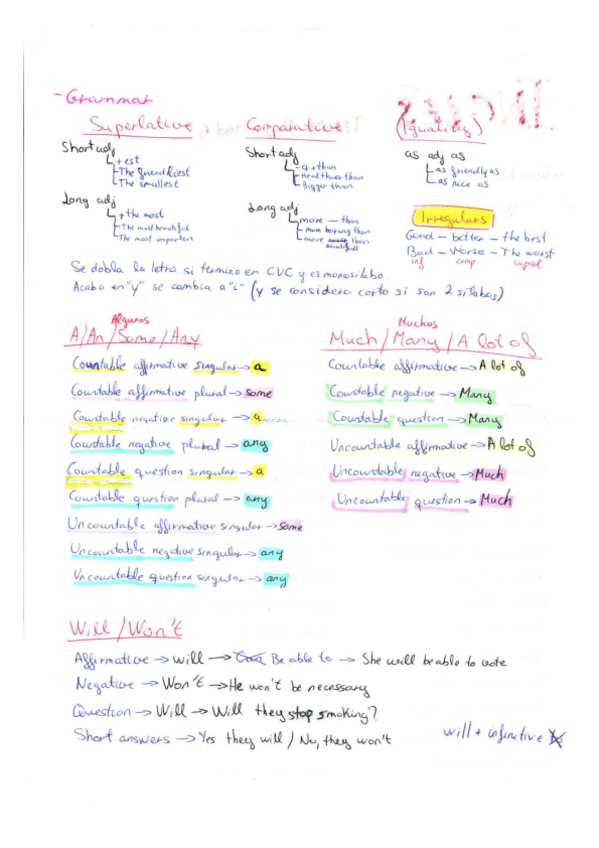 - Grammar
Superlative
Short adj
+ est
The friendliest
The smallest
Long adj
+ the most
The most beautiful
The most important
Comparative
Short adj
-er + than
Healthier than
Bigger than
Long adj
more — than
more boring than
more beautifull than
(Iguality)
as adj as
as friendly as
as nice as
Irregulars
Good – better – the best
Bad – Worse – The worst
inf comp superl
Se dobla la letra si termino en CVC y es monosilabo
Acaba en "y" se cambia a "i" (y se considera corto si son 2 silabas)
Algunos
A/An/Some/Any
Countable affirmative singular → a
Countable affirmative plural → some
Countable negative singular → a
Countable negative plural → any
Countable question singular → a
Countable question plural → any
Uncountable affirmative singular → some
Uncountable negative singular → any
Uncountable question singular → any
Muchos
Much/Many/A lot of
Countable affirmative → A lot of
Countable negative → Many
Countable question → Many
Uncountable affirmative → A lot of
Uncountable negative → Much
Uncountable question → Much
Will/Won't
Affirmative → will → Be able to → She will be able to vote
Negative → Won't → He won't be necessary
Question → Will → Will they stop smoking?
Short answers → Yes they will / No, they won't
will + infinitive